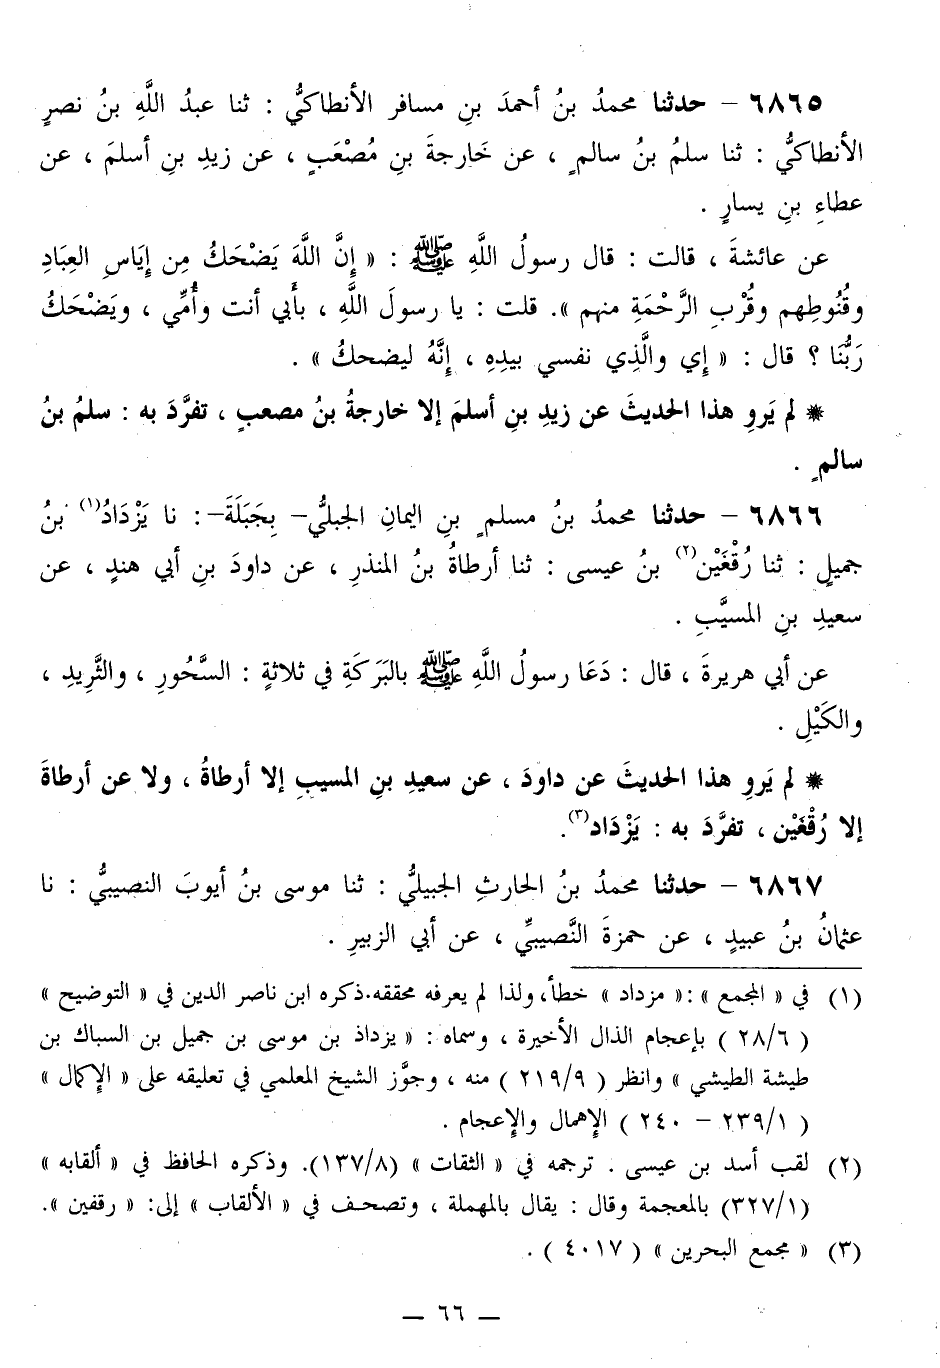 ٦٨٦٥ – حدثنا محمدُ بنُ أحمدَ بنِ مسافر الأنطاكيُّ : ثنا عبدُ اللَّهِ بنُ نصرٍ
الأنطاكيُّ : ثنا سلمُ بنُ سالمٍ ، عن خَارجةَ بنِ مُصْعَبٍ ، عن زيدِ بنِ أسلمَ ، عن
عطاءِ بنِ يسارٍ .
عن عائشةَ ، قالت : قال رسولُ اللَّهِ ﷺ : « إِنَّ اللَّهَ يَضْحَكُ مِن إِيَاسِ العِبَادِ
وقُنُوطِهم وقُرْبِ الرَّحْمَةِ منهم ». قلت : يا رسولَ اللَّهِ ، بأَبي أنت وأُمِّي ، ويَضْحَكُ
رَبُّنَا ؟ قال : « إِي والَّذِي نفسي بيدِهِ ، إِنَّهُ ليضحكُ » .
* لم يَروِ هذا الحديثَ عن زيدِ بنِ أسلمَ إلا خارجةُ بنُ مصعبٍ ، تفرَّدَ به : سلمُ بنُ
سالمٍ .
٦٨٦٦ – حدثنا محمدُ بنُ مسلمٍ بنِ اليمانِ الجبليُّ – بِجَبَلَةَ – : نا يَزْدَادُ(١) بنُ
جميلٍ : ثنا رُقْغَيْن(٢) بنُ عيسى : ثنا أرطاةُ بنُ المنذرِ ، عن داودَ بنِ أبي هندٍ ، عن
سعيدِ بنِ المسيَّبِ .
عن أبي هريرةَ ، قال : دَعَا رسولُ اللَّهِ ﷺ بالبَرَكَةِ في ثلاثةٍ : السَّحُورِ ، والثَّرِيدِ ،
والكَيْلِ .
* لم يَروِ هذا الحديثَ عن داودَ ، عن سعيدِ بنِ المسيبِ إلا أرطاةُ ، ولا عن أرطاةَ
إلا رُقْغَيْن ، تفرَّدَ به : يَزْدَاد(٣).
٦٨٦٧ – حدثنا محمدُ بنُ الحارثِ الجبيليُّ : ثنا موسى بنُ أيوبَ النصيبيُّ : نا
عثمانُ بنُ عبيدٍ ، عن حمزةَ النَّصيبيِّ ، عن أبي الزبيرِ .
(١) في « المجمع » :« مزداد » خطأ، ولذا لم يعرفه محققه.ذكره ابن ناصر الدين في « التوضيح »
( ٢٨/٦ ) بإعجام الذال الأخيرة ، وسماه : « يزداذ بن موسى بن جميل بن السباك بن
طيشة الطيشي » وانظر ( ٢١٩/٩ ) منه ، وجوَّز الشيخ المعلمي في تعليقه على « الإكمال »
( ٢٣٩/١ – ٢٤٠ ) الإهمال والإعجام .
(٢) لقب أسد بن عيسى . ترجمه في « الثقات » (١٣٧/٨). وذكره الحافظ في « ألقابه »
(٣٢٧/١) بالمعجمة وقال : يقال بالمهملة ، وتصحف في « الألقاب » إلى: « رقفين ».
(٣) « مجمع البحرين » ( ٤٠١٧ ) .
– ٦٦ –